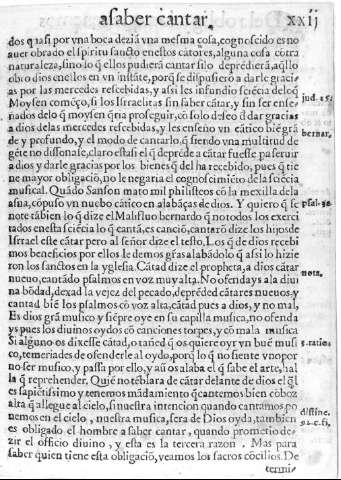 asaber cantar. xxij
dos q̃ asi por vna boca deziã vna mesma cosa, cognoscido es no
auer obrado el spiritu sancto enestos cãtores, alguna cosa cõtra
naturaleza, sino lo q̃ ellos pudierã cantar si lo deprẽdierã, aq̃llo
obro dios enellos en vn instãte, porq̃ se dispusiero a darle gracias
por las mercedes rescebidas, y assi les infundio sciẽcia delo q̃
Moysen comẽço, si los Israelitas sin saber cãtar, y sin ser enseñados
delo q̃ moysen q̃ria proseguir, cõ solo deseo d̃ dar gracias
a dios delas mercedes rescebidas, y les enseño vn cãtico biẽ grãde
y profundo, y el modo de cantarlo, q̃ siendo vna multitud de
gẽte no dissonase, claro esta si el q̃ deprẽde a cãtar fuesse pa seruir
a dios y darle gracias por los bienes q̃ del ha recebido, pues q̃ tiene
mayor obligaciõ, no le negaria el cognoscimiẽto dela sciẽcia
musical. Quãdo Sanson mato mil philisteos cõ la mexilla dela
asna, cõpuso vn nueuo cãtico en alabãças de dios. Y quiero q̃ se
note tãbien lo q̃ dize el Malifluo bernardo q̃ notodos los exercitados
enesta sciẽcia lo q̃ cantã, es canciõ, cantarõ dize los hijos de
Israel este cãtar pero al señor dize el testo. Los q̃ de dios recebimos
beneficios por ellos le demos gr̃as alabãdolo q̃ assi lo hiziero
los sanctos en la yglesia. Cãtad dize el propheta, a dios cãtar
nueuo, cantãdo psalmos en voz muy alta. No ofendays ala diuina
bõdad, dexad la vejez del pecado, deprẽded cãtares nueuos, y
cantad biẽ los psalmos cõ voz alta, cãtad pues a dios, y no mal.
Es dios grã musico y siẽpre oye en su capilla musica, no ofenda
ys pues los diuinos oydos cõ canciones torpes, y cõ mala musica
Si alguno os dixesse cãtad, o tañed q̃ os quiere oyr vn buẽ musico,
temeriades de ofenderle al oydo, porq̃ lo q̃ no siente vno por
no ser musico, y passa por ello, y aũ os alaba el q̃ sabe el arte, halla
q̃ reprehender. Quiẽ no tẽblara de cãtar delante de dios el q̃l
es sapiẽtissimo y tenemos mãdamiẽto q̃ cantemos bien coboz
alta q̃ allegue al cielo, si nuestra intencion quando cantamos ponemos
en el cielo, nuestra musica, sera de Dios oyda, tambien
es obligado el hombre a saber cantar, quando prometio dezir
el officio diuino, y esta es la tercera razon. Mas para
saber quien tiene esta obligaciõ, veamos los sacros cõcilios. De
termi-
jud. 15.
bernar.
nota.